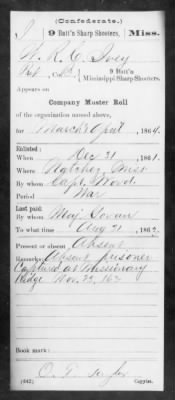 (Confederate.)
9 Batt'n Sharp Shooters, Miss.
W. R. C. Ivey
Pvt, Co. 9 Batt'n
Mississippi Sharp Shooters.
Appears on
Company Muster Roll
of the organization named above,
for March & April, 1864.
Enlisted:
When Dec 21, 1861.
Where Natchez, Miss
By whom Capt. Wood
Period War
Last paid:
By whom Maj. Govan
To what time Aug 31, 1862.
Present or absent Absent
Remarks: Absent prisoner
Captured at Missionary
Ridge Nov. 25, 163
Book mark:
O. T. Taylor
(642) Copyist.